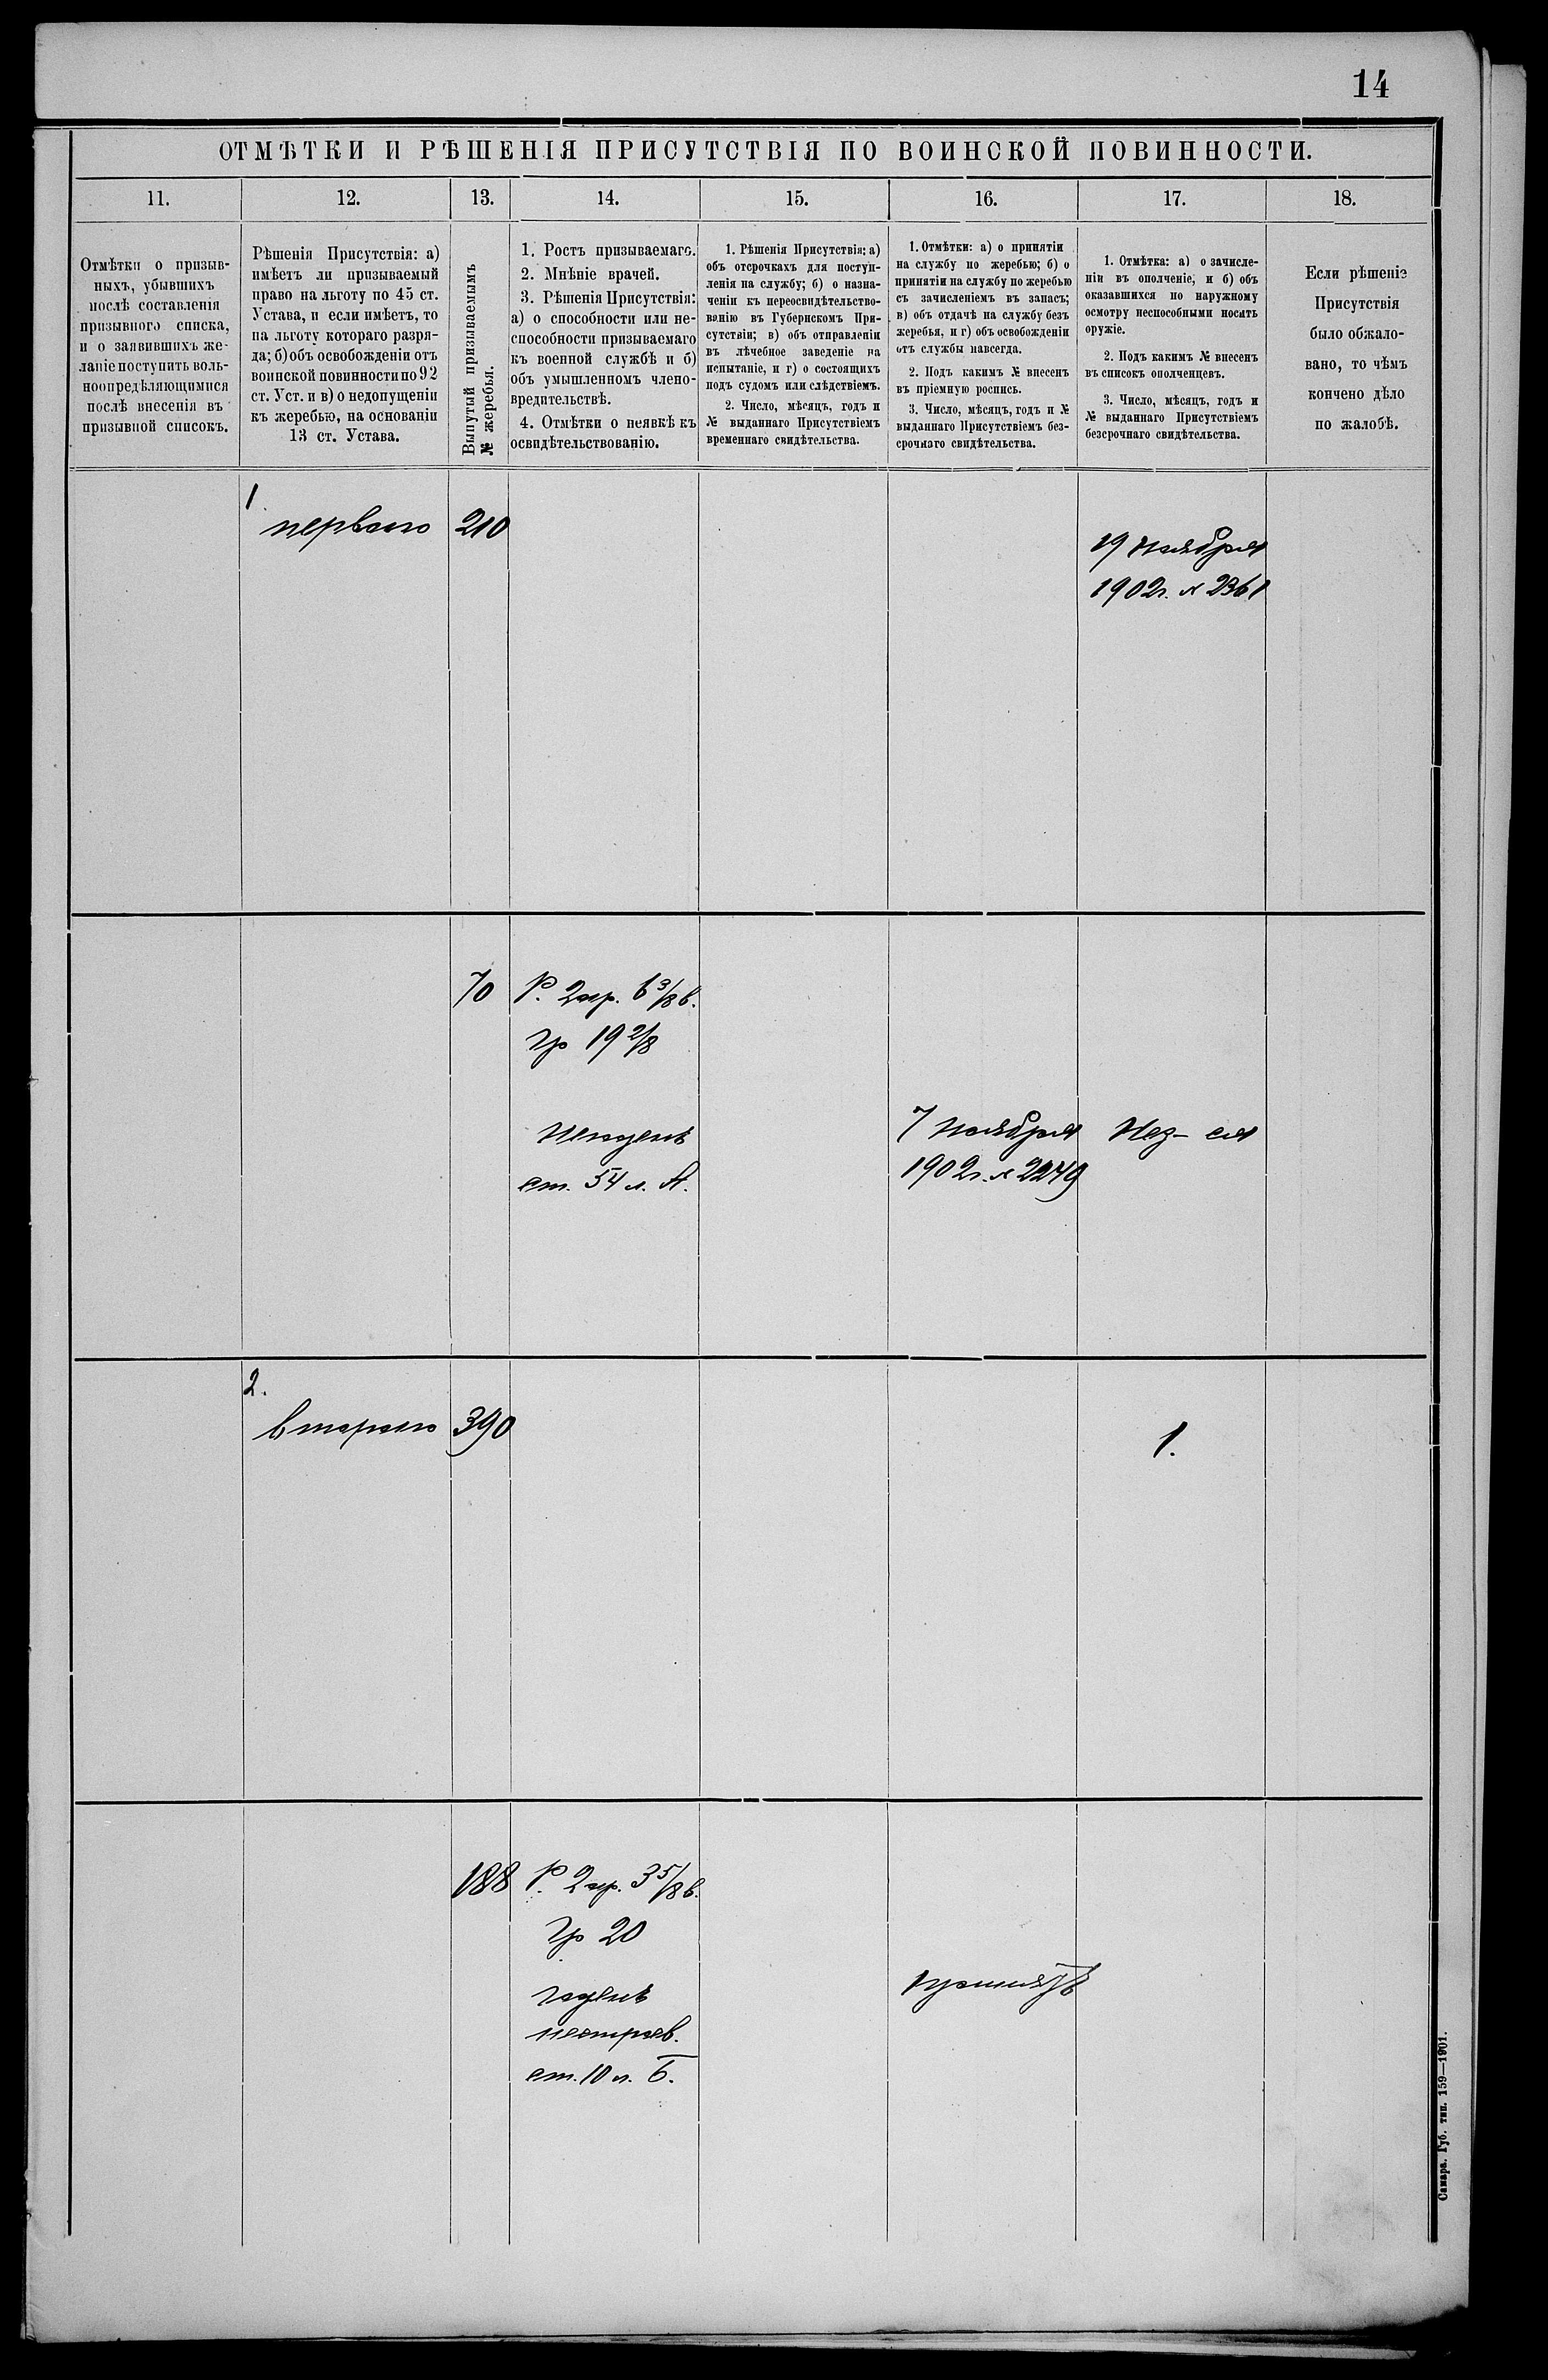 14
ОТМѢТКИ И РѢШЕНІЯ ПРИСУТСТВІЯ ПО ВОИНСКОЙ ПОВИННОСТИ.
11.
12.
13.
14.
15.
16.
17.
18.
Отмѣтки о призыв-
ныхъ, убывшихъ
послѣ составленія
призывного списка,
и о заявившихъ же-
ланіе поступить воль-
ноопредѣляющимися
послѣ внесенія въ
призывной списокъ.
Рѣшенія Присутствія: а)
имѣетъ ли призываемый
право на льготу по 45 ст.
Устава, и если имѣетъ, то
на льготу котораго разря-
да; б) объ освобожденіи отъ
воинской повинности по 92
ст. Уст. и в) о недопущеніи
къ жеребью, на основаніи
13 ст. Устава.
Вынутый призываемымъ
№ жеребья.
1. Ростъ призываемаго.
2. Мнѣніе врачей.
3. Рѣшенія Присутствія:
а) о способности или не-
способности призываемаго
къ военной службѣ и б)
объ умышленномъ члено-
вредительствѣ.
4. Отмѣтки о неявкѣ къ
освидѣтельствованію.
1. Рѣшенія Присутствія: а)
объ отсрочкахъ для поступ-
ленія на службу; б) о назна-
ченіи къ переосвидѣтельство-
ванію въ Губернскомъ При-
сутствіи; в) объ отправленіи
въ лѣчебное заведеніе на
испытаніе, и г) о состоящихъ
подъ судомъ или слѣдствіемъ.
2. Число, мѣсяцъ, годъ и
№ выданнаго Присутствіемъ
временнаго свидѣтельства.
1. Отмѣтки: а) о принятіи
на службу по жеребью; б) о
принятіи на службу по жеребью
съ зачисленіемъ въ запасъ;
в) объ отдачѣ на службу безъ
жеребья, и г) объ освобожденіи
отъ службы навсегда.
2. Подъ какимъ № внесенъ
въ пріемную роспись.
3. Число, мѣсяцъ, годъ и №
выданнаго Присутствіемъ без-
срочнаго свидѣтельства.
1. Отмѣтка: а) о зачисле-
ніи въ ополченіе, и б) объ
оказавшихся по наружному
осмотру неспособными носить
оружіе.
2. Подъ какимъ № внесенъ
въ списокъ ополченцевъ.
3. Число, мѣсяцъ, годъ и
№ выданнаго Присутствіемъ
безсрочнаго свидѣтельства.
Если рѣшеніе
Присутствія
было обжало-
вано, то чѣмъ
кончено дѣло
по жалобѣ.
1
перваго
210
19 ноября
1902г. № 2361
70
Р. 2 ар. 6 3/8 в.
гр 19 2/8
Негоденъ
ст. 54 л. А.
7 ноября
1902г. № 2249
2.
втораго
390
1.
188
Р. 2 ар. 3 5/8 в.
гр 20
годенъ
нестроев.
ст. 10 л. Б.
принятъ
Самара. Губ. тип. 159—1901.